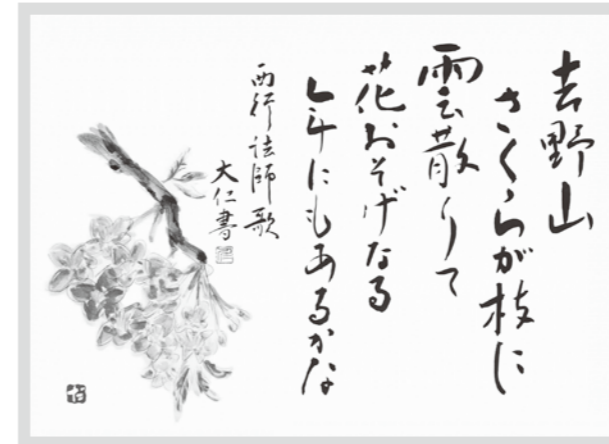 吉野山
さくらが枝に
雲散りて
花おそげなる
年にもあるかな
西行法師歌
大仁書